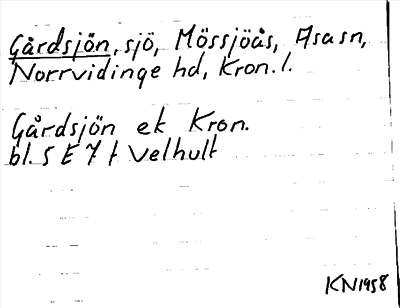 Gårdsjön, sjö, Mössjöås, Asa sn,
Norrvidinge hd, Kron. l.
Gårdsjön ek Kron.
bl. 5 E 7 f Velhult
KN 1958